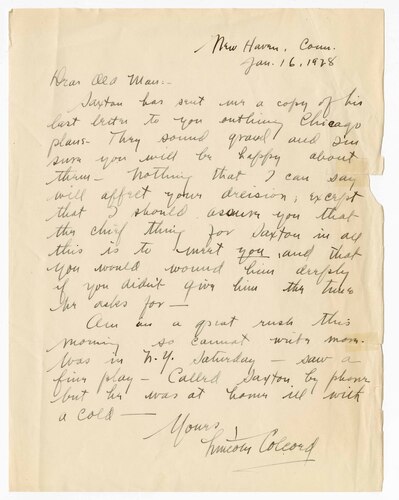 New Haven, Conn.
Jan. 16, 1928
Dear Old Man:-
Saxton has sent me a copy of his
last letter to you outlining Chicago
plans. They sound grand and I'm
sure you will be happy about
them - Nothing that I can say
will affect your decision, except
that I should assure you that
the chief thing for Saxton in all
this is to meet you, and that
you would wound him deeply
if you didn't give him the time
he asks for -
Am in a great rush this
morning so cannot write more.
Was in N.Y. Saturday - saw a
fine play - Called Saxton by phone
but he was at home ill with
a cold -
Yours,
Lincoln Colcord